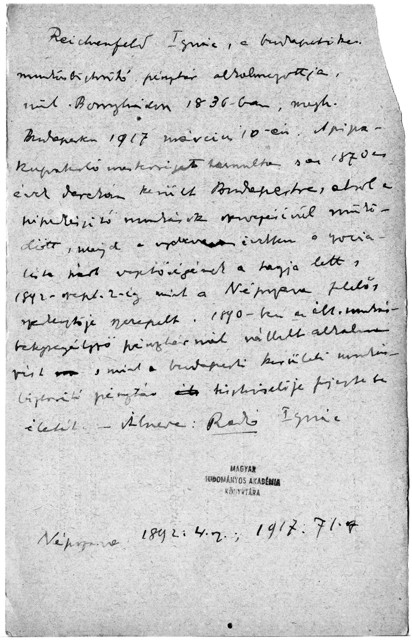 Reichenfeld Ignác, a budapesti ker.
munkásbiztosító pénztár alkalmazottja,
szül. Bonyhádon 1836-ban, megh.
Budapesten 1917 március 10-én. A pipa-
kupakoló mesterséget tanulta s az 1870-es
évek derekán került Budapestre, ahol a
munkások szervezésénél műkö-
dött, majd a években a szocia-
lista párt vezetőségének a tagja lett s
1892. szept. 2-ig mint a Népszava felelős
szerkesztője szerepelt. 1890-ben az ált. munkás-
betegsegélyző pénztárnál vállalt alkalma-
zást s mint a budapesti kerületi munkás-
biztosító pénztár tisztviselője fejezte be
életét. — Álneve: Radó Ignác
MAGYAR
TUDOMÁNYOS AKADÉMIA
KÖNYVTÁRA
Népszava 1892. 1917. 71.